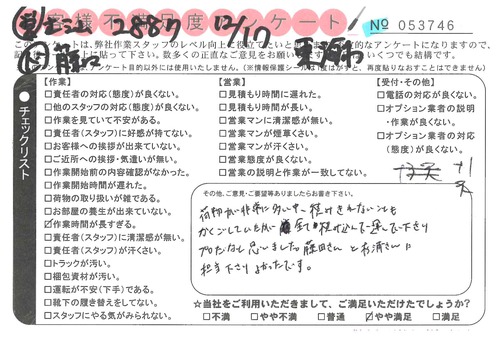 お客様不満足度アンケート
2887 12/17
№ 053746
このアンケートは、弊社作業スタッフのレベル向上に役立てたい
チェックリスト
【作業】
□責任者の対応(態度)が良くない。
□他のスタッフの対応(態度)が良くない。
□作業を見ていて不安がある。
□責任者(スタッフ)に好感が持てない。
□お客様への挨拶が出来ていない。
□ご近所への挨拶・気遣いが無い。
□作業開始前の内容確認がなかった。
□作業開始時間が遅れた。
□荷物の取り扱いが雑である。
□お部屋の養生が出来ていない。
☑作業時間が長すぎる。
□責任者(スタッフ)に清潔感が無い。
□責任者(スタッフ)が汗くさい。
□トラックが汚い。
□梱包資材が汚い。
□運転が不安(下手)である。
□靴下の履き替えをしてない。
□スタッフにやる気がみられない。
【営業】
□見積もり時間に遅れた。
□見積もり時間が長い。
□営業マンに清潔感が無い。
□営業マンが煙草くさい。
□営業マンが汗くさい。
□営業態度が良くない。
□営業の説明と作業が一致してない。
【受付・その他】
□電話の対応が良くない。
□オプション業者の説明
・作業が良くない。
□オプション業者の対応
(態度)が良くない。
その他、ご意見・ご要望等ありましたらお書き下さい。
荷物が非常に多い中、積みきれないことも
かくごしていたが 全て積み込んで運んで下さり
プロだなと思いました。藤田さんと杉浦さんに
担当下さりよかったです。
☆当社をご利用いただきまして、ご満足いただけたでしょうか?
□不満 □やや不満 □普通 ☑やや満足 □満足